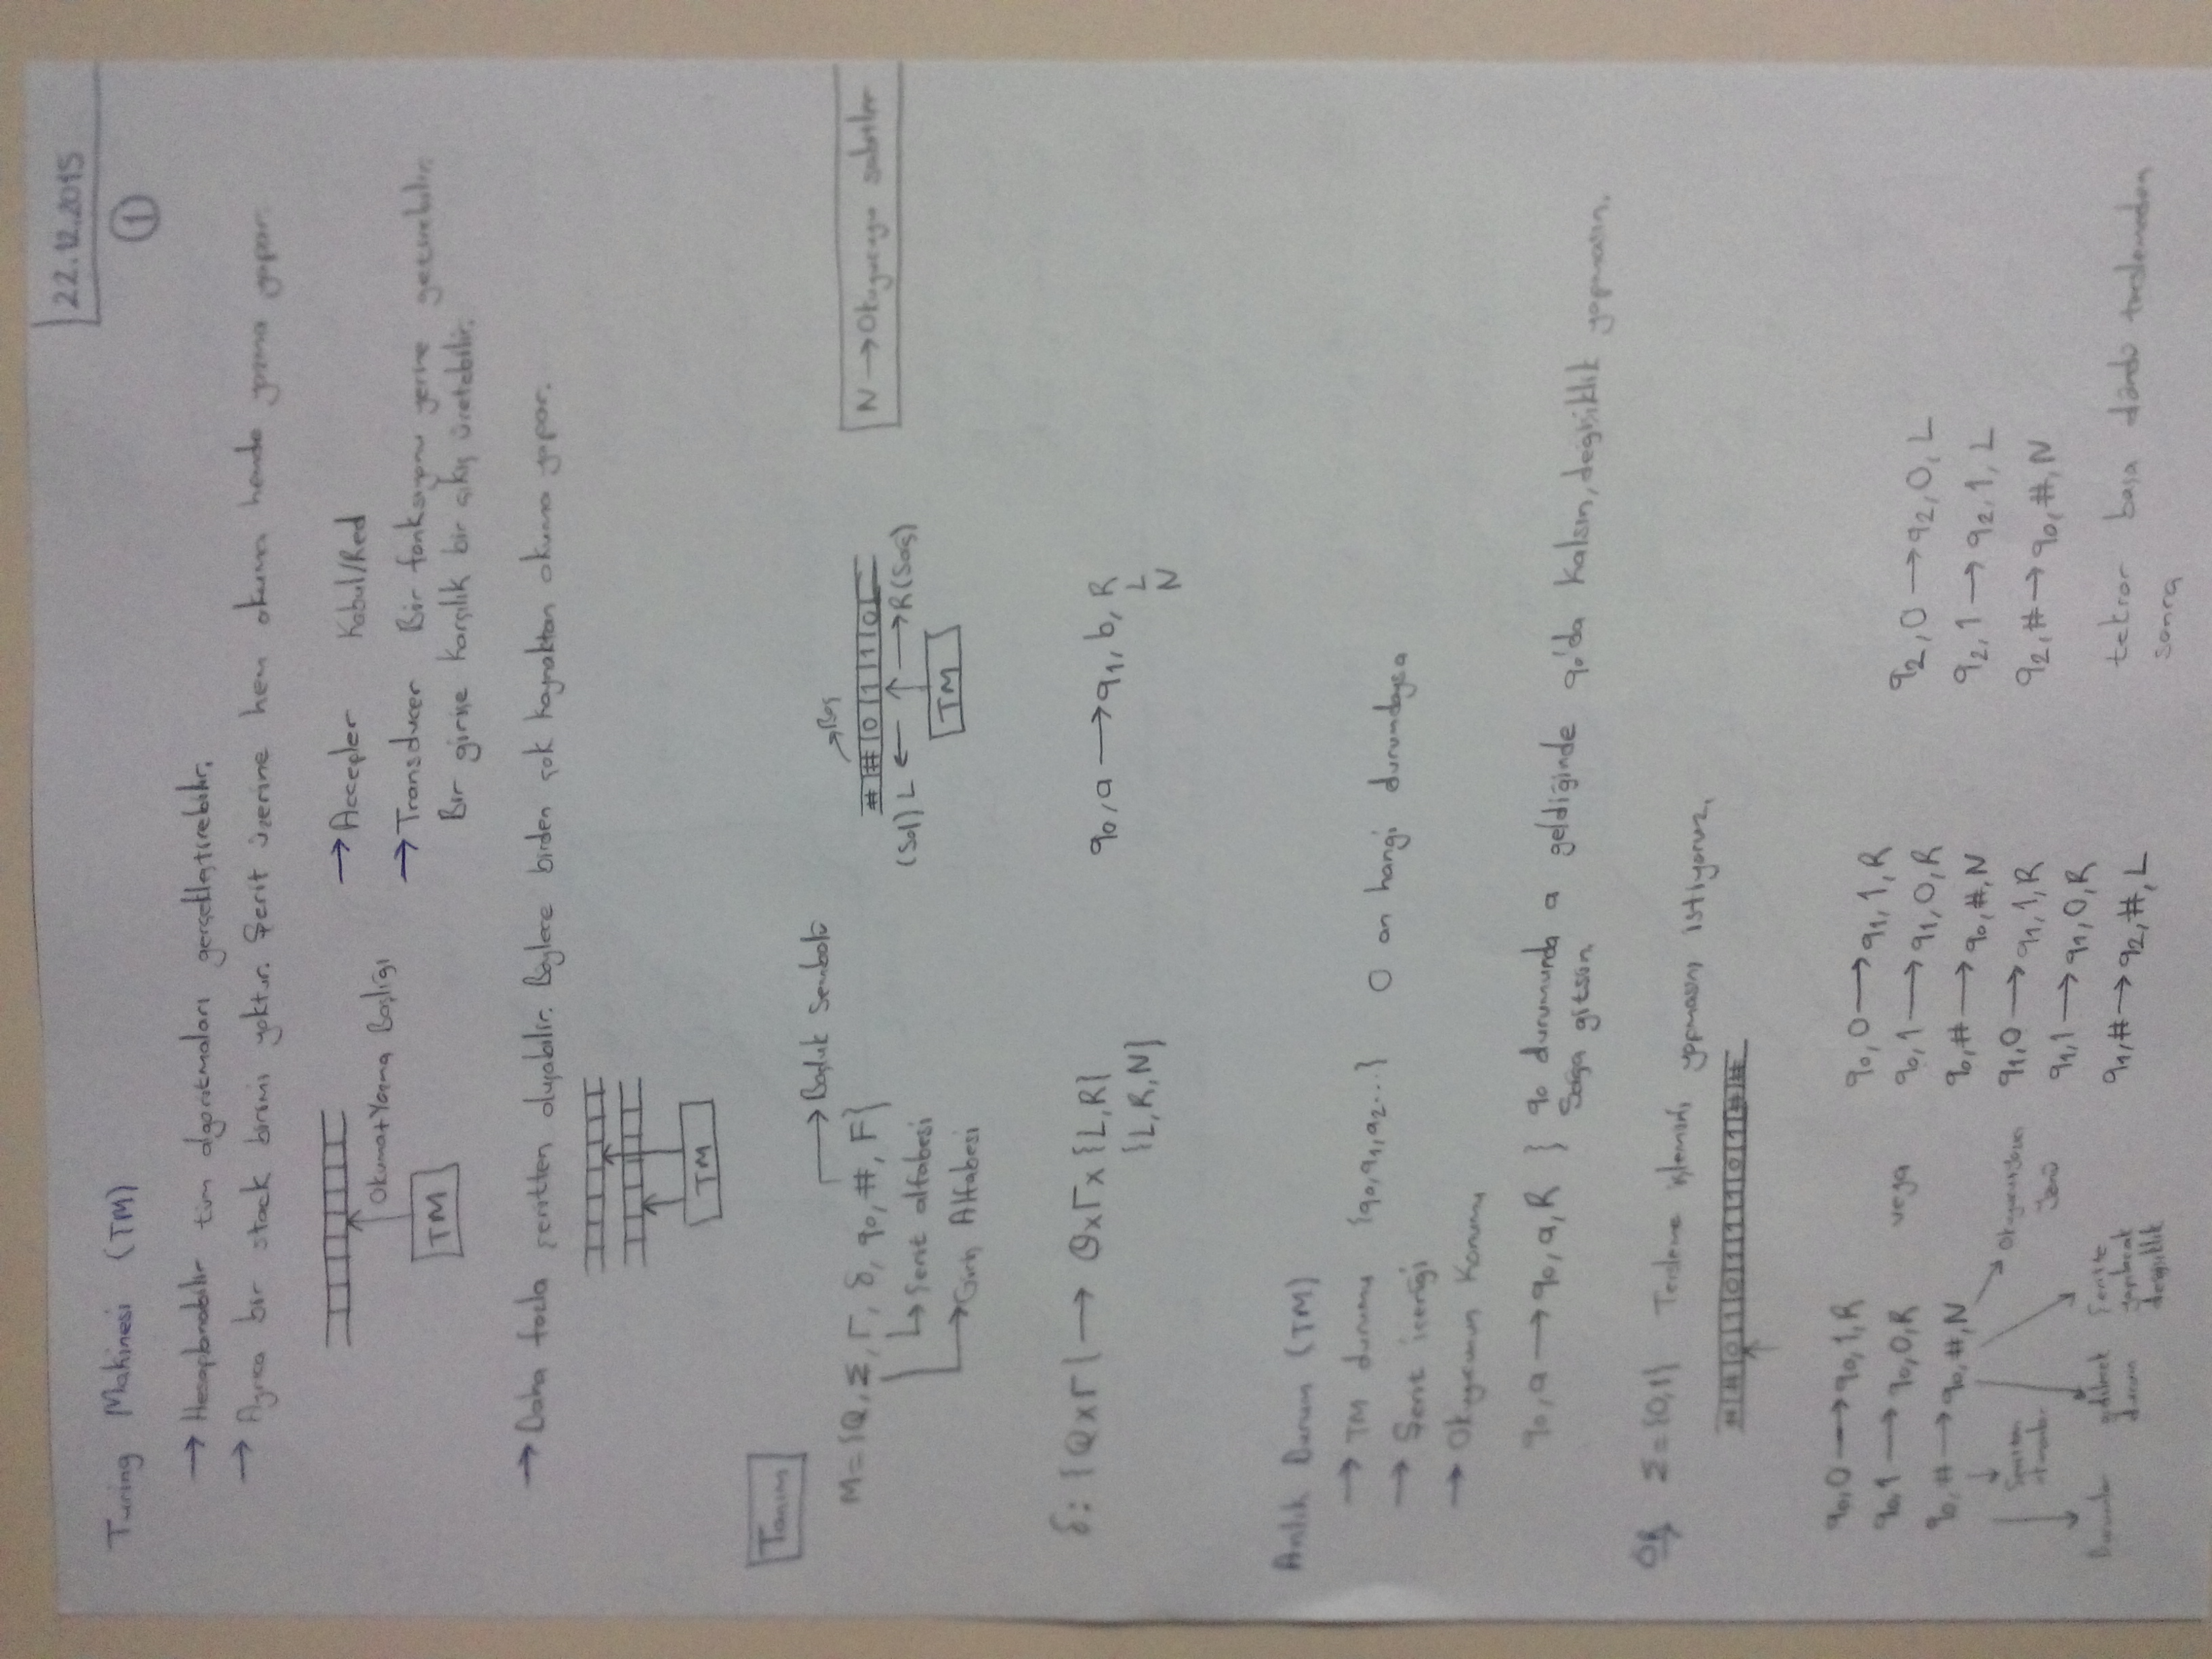 22.12.2015
1
Turing Makinesi (TM)
→ Hesaplanabilir tüm algoritmaları gerçekleştirebilir.
→ Ayrıca bir stack birimi yoktur. Şerit üzerine hem okuma hemde yazma yapar.
Okuma+Yazma Başlığı
TM
→ Accepter Kabul/Red
→ Transducer Bir fonksiyonu yerine getirebilir.
Bir girişe karşılık bir çıkış üretebilir.
→ Daha fazla şeritten oluşabilir. Böylece birden çok kaynaktan okuma yapar.
TM
Tanım
→ Boşluk Sembolü
M={Q, Σ, Γ, δ, q0, #, F}
→ Şerit alfabesi
→ Giriş Alfabesi
→ Boş
# # 0 1 1 0
(Sol) L ← → R (Sağ)
TM
N → Okuyucuyu sabitler
δ: {Q×Γ} → Q×Γ×{L,R}
{L,R,N}
q0, a → q1, b, R
L
N
Anlık Durum (TM)
→ TM durumu {q0,q1,q2...} O an hangi durumdaysa
→ Şerit içeriği
→ Okuyucunun Konumu
q0, a → q0, a, R } q0 durumunda a geldiğinde q0'da kalsın, değişiklik yapmasın.
Sağa gitsin.
ÖR Σ={0,1} Tersleme işlemini yapmasını istiyoruz.
# # 0 1 0 1 1 1 0 1 # #
q0, 0 → q0, 1, R
q0, 1 → q0, 0, R
q0, # → q0, #, N
veya
Durumlar
gidilecek
durum
Şeritte
yapılacak
değişiklik
Okuyucunun
Yönü
q0, 0 → q1, 1, R
q0, 1 → q1, 0, R
q0, # → q0, #, N
q1, 0 → q1, 1, R
q1, 1 → q1, 0, R
q1, # → q2, #, L
q2, 0 → q2, 0, L
q2, 1 → q2, 1, L
q2, # → q0, #, N
tekrar başa döndü terslemeden
sonra